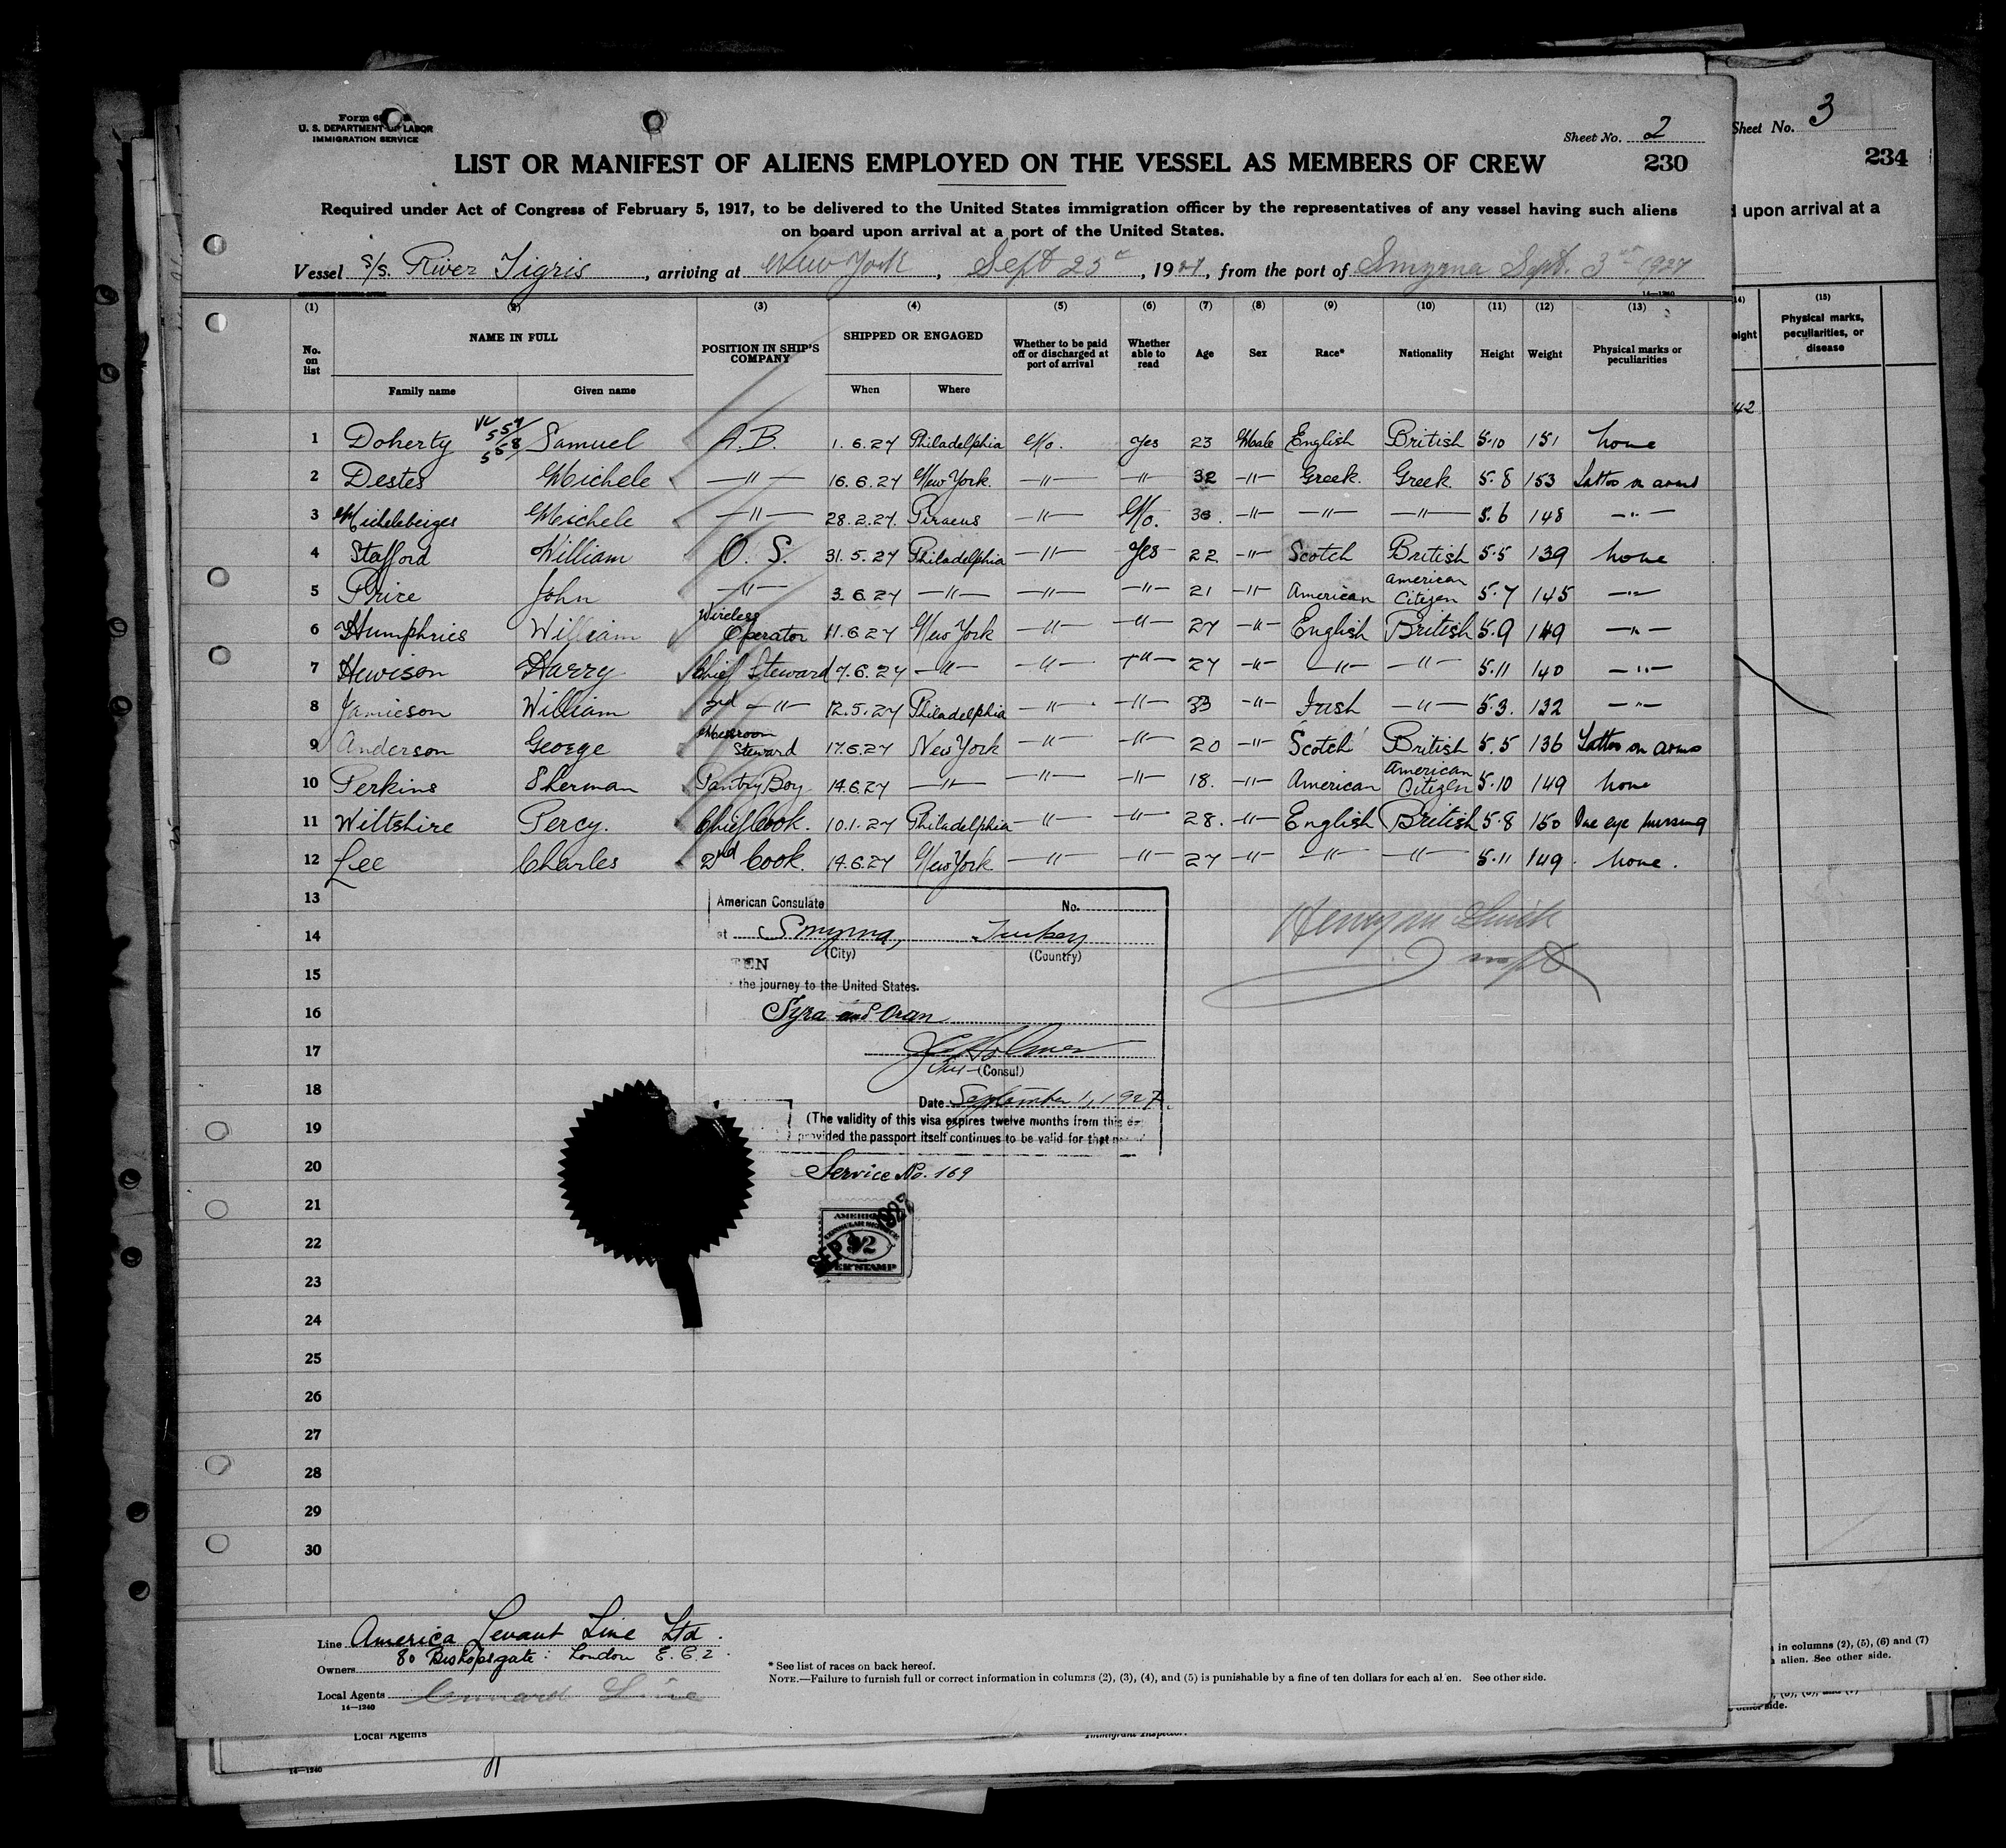 Form 6
U. S. DEPARTMENT OF LABOR
IMMIGRATION SERVICE
Sheet No. 2
LIST OR MANIFEST OF ALIENS EMPLOYED ON THE VESSEL AS MEMBERS OF CREW 230
Required under Act of Congress of February 5, 1917, to be delivered to the United States immigration officer by the representatives of any vessel having such aliens
on board upon arrival at a port of the United States.
Vessel S/S. River Tigris, arriving at New York, Sept 25, 1927, from the port of Smyrna Sept. 3 1927
14—1240
(1) (2) (3) (4) (5) (6) (7) (8) (9) (10) (11) (12) (13)
No. on list NAME IN FULL Family name Given name POSITION IN SHIP'S COMPANY SHIPPED OR ENGAGED When Where Whether to be paid off or discharged at port of arrival Whether able to read Age Sex Race* Nationality Height Weight Physical marks or peculiarities
1 Doherty 557/558 Samuel A.B. 1.6.27 Philadelphia No. Yes 23 Male English British 5.10 151 none
2 Destes Michele —"— 16.6.27 New York —"— —"— 32 —"— Greek. Greek 5.8 153 Tattoo on arms
3 Michelebeiges Michele —"— 28.2.27. Piraeus —"— No. 30 —"— —"— —"— 5.6 148 —"—
4 Stafford William O. S. 31.5.27 Philadelphia —"— Yes 22 —"— Scotch British 5.5 139 none
5 Price John —"— 3.6.27 —"— —"— —"— 21 —"— American American Citizen 5.7 145 —"—
6 Humphries William Wireless Operator 11.6.27 New York —"— —"— 27 —"— English British 5.9 149 —"—
7 Hewison Harry Chief Steward 7.6.27 —"— —"— —"— 27 —"— —"— —"— 5.11 140 —"—
8 Jamieson William 2nd —"— 12.5.27 Philadelphia —"— —"— 33 —"— Irish —"— 5.3. 132 —"—
9 Anderson George Messroom Steward 17.6.27 New York —"— —"— 20 —"— Scotch British 5.5 136 Tattoo on arms
10 Perkins Sherman Pantry Boy 14.6.27 —"— —"— —"— 18. —"— American American Citizen 5.10 149 none
11 Wiltshire Percy. Chief Cook. 10.1.27 Philadelphia —"— —"— 28. —"— English British 5.8 150 One eye missing
12 Lee Charles 2nd Cook. 14.6.27 New York —"— —"— 27 —"— —"— —"— 5.11 149. none.
13
American Consulate No.
14
at Smyrna, Turkey
(City) (Country)
TEN
15
the journey to the United States.
16
Syra and Oran
17
(Consul)
18
Date September 1, 1927.
19
(The validity of this visa expires twelve months from this
provided the passport itself continues to be valid for that
20
Service No. 169
21
AMERICAN
CONSULAR SERVICE
SEP 1 1927
22
$2
FEE STAMP
23
24
25
26
27
28
29
30
Line America Levant Line Ltd.
Owners 80 Bishopsgate: London E.C.2.
Local Agents Cunard Line
14—1240
* See list of races on back hereof.
NOTE.—Failure to furnish full or correct information in columns (2), (3), (4), and (5) is punishable by a fine of ten dollars for each alien. See other side.
Local Agents
Immigrant Inspector.
14—1240
11
Sheet No. 3
234
upon arrival at a
14) (15)
eight Physical marks, peculiarities, or disease
42
in columns (2), (5), (6) and (7)
alien. See other side.